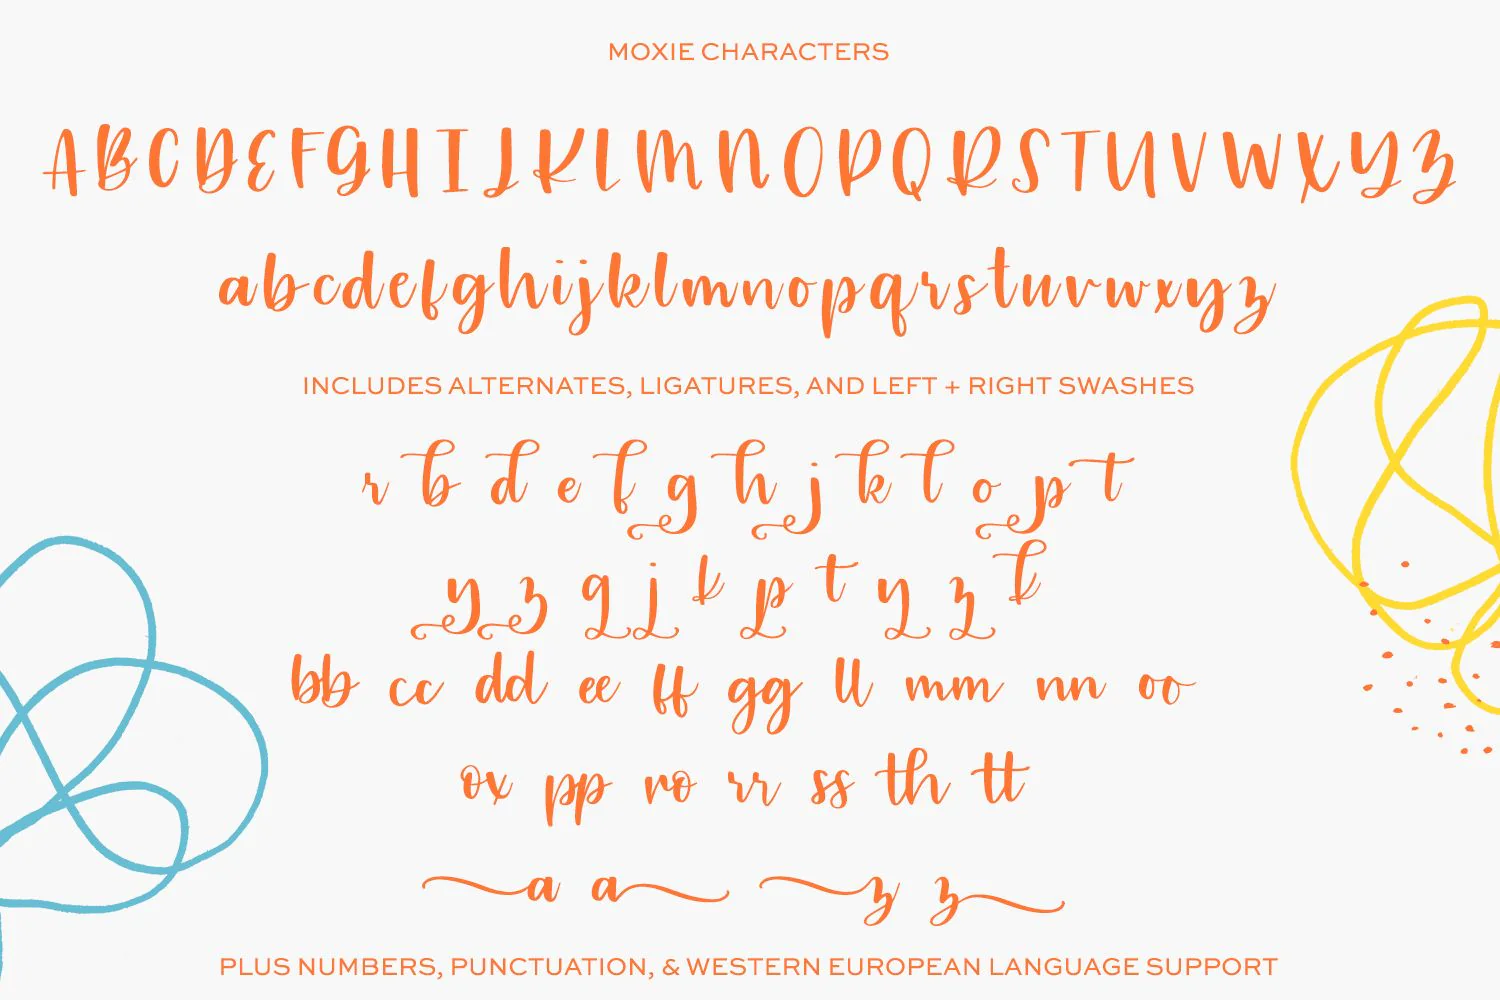 MOXIE CHARACTERS
ABCDEFGHIJKLMNOPQRSTUVWXYZ
abcdefghijklmnopqrstuvwxyz
INCLUDES ALTERNATES, LIGATURES, AND LEFT + RIGHT SWASHES
r b d e f g h j k l o p t
y z g j k p t y z k
bb cc dd ee ff gg ll mm nn oo
ox pp ro rr ss th tt
a a z z
PLUS NUMBERS, PUNCTUATION, & WESTERN EUROPEAN LANGUAGE SUPPORT